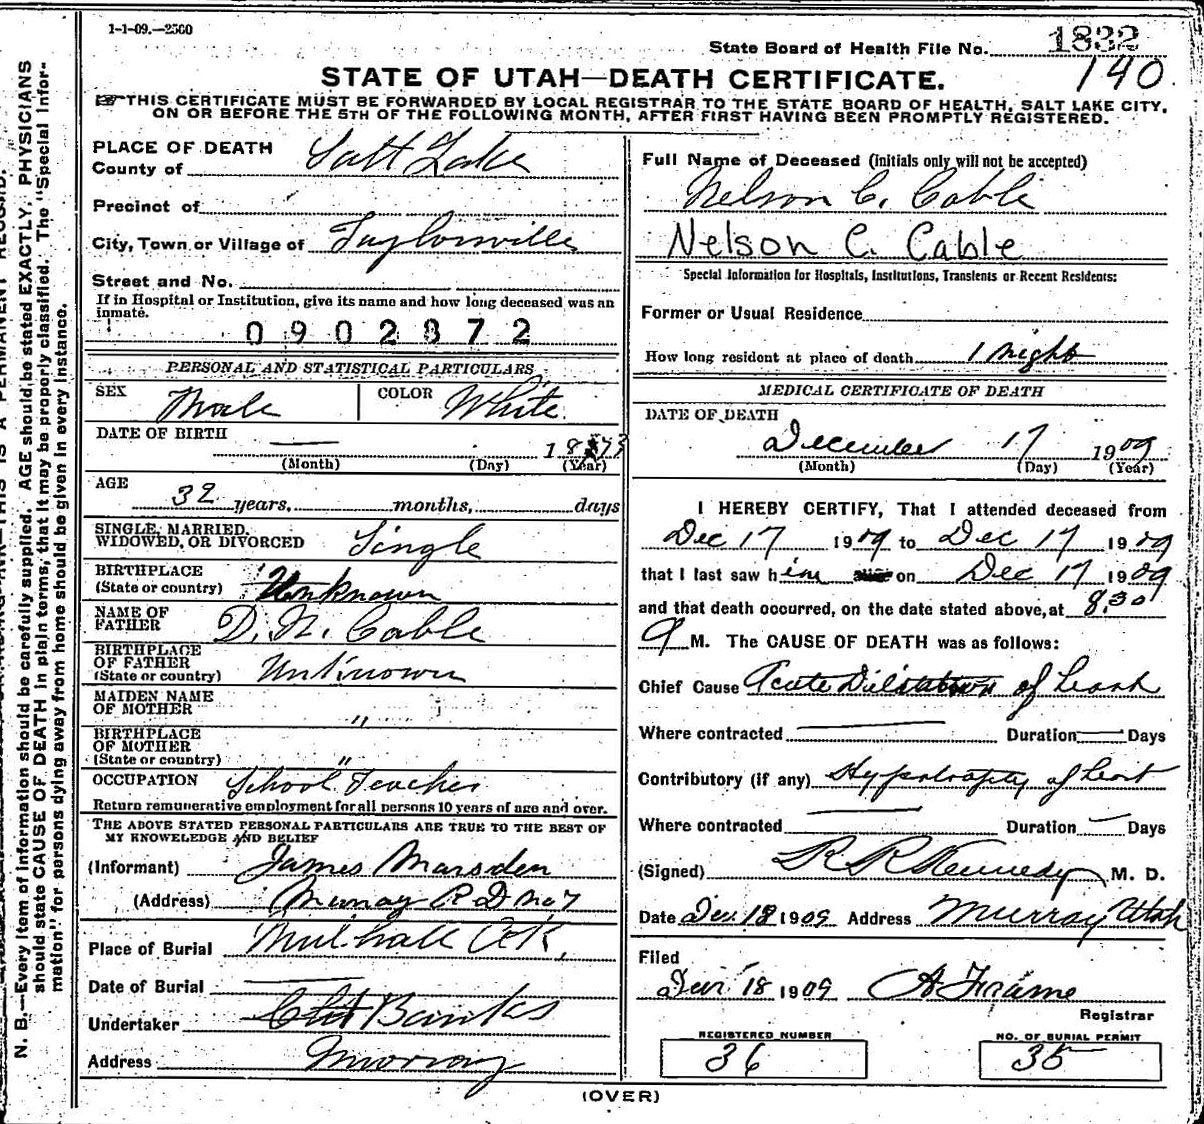 1-1-09.—2500
State Board of Health File No. 1832
190
STATE OF UTAH—DEATH CERTIFICATE.
THIS CERTIFICATE MUST BE FORWARDED BY LOCAL REGISTRAR TO THE STATE BOARD OF HEALTH, SALT LAKE CITY,
ON OR BEFORE THE 5TH OF THE FOLLOWING MONTH, AFTER FIRST HAVING BEEN PROMPTLY REGISTERED.
N. B.—Every item of information should be carefully supplied. AGE should be stated EXACTLY. PHYSICIANS
should state CAUSE OF DEATH in plain terms, that it may be properly classified. The "Special Infor-
mation" for persons dying away from home should be given in every instance.
PLACE OF DEATH
County of Salt Lake
Precinct of
City, Town or Village of Taylorsville
Street and No.
If in Hospital or Institution, give its name and how long deceased was an
inmate.
0902872
PERSONAL AND STATISTICAL PARTICULARS
SEX Male COLOR White
DATE OF BIRTH — 1873
(Month) (Day) (Year)
AGE
32 years, months, days
SINGLE, MARRIED,
WIDOWED, OR DIVORCED Single
BIRTHPLACE
(State or country) Unknown
NAME OF
FATHER D. N. Cable
BIRTHPLACE
OF FATHER
(State or country) Unknown
MAIDEN NAME
OF MOTHER "
BIRTHPLACE
OF MOTHER
(State or country) "
OCCUPATION School Teacher
Return remunerative employment for all persons 10 years of age and over.
THE ABOVE STATED PERSONAL PARTICULARS ARE TRUE TO THE BEST OF
MY KNOWELEDGE AND BELIEF
(Informant) James Marsden
(Address) Murray R D no 7
Place of Burial Mulhall Ok,
Date of Burial —
Undertaker Banks
Address Murray
Full Name of Deceased (initials only will not be accepted)
Nelson C. Cable
Nelson C. Cable
Special Information for Hospitals, Institutions, Transients or Recent Residents:
Former or Usual Residence
How long resident at place of death 1 night
MEDICAL CERTIFICATE OF DEATH
DATE OF DEATH
December 17 1909
(Month) (Day) (Year)
I HEREBY CERTIFY, That I attended deceased from
Dec 17 1909 to Dec 17 1909
that I last saw him on Dec 17 1909
and that death occurred, on the date stated above, at 8.30
a M. The CAUSE OF DEATH was as follows:
Chief Cause Acute Dilatation of heart
Where contracted — Duration — Days
Contributory (if any) Hypertrophy of heart
Where contracted — Duration — Days
(Signed) R R Kennedy M. D.
Date Dec. 18 1909 Address Murray Utah
Filed
Dec 18 1909 A Frame
Registrar
REGISTERED NUMBER
36
NO. OF BURIAL PERMIT
35
(OVER)